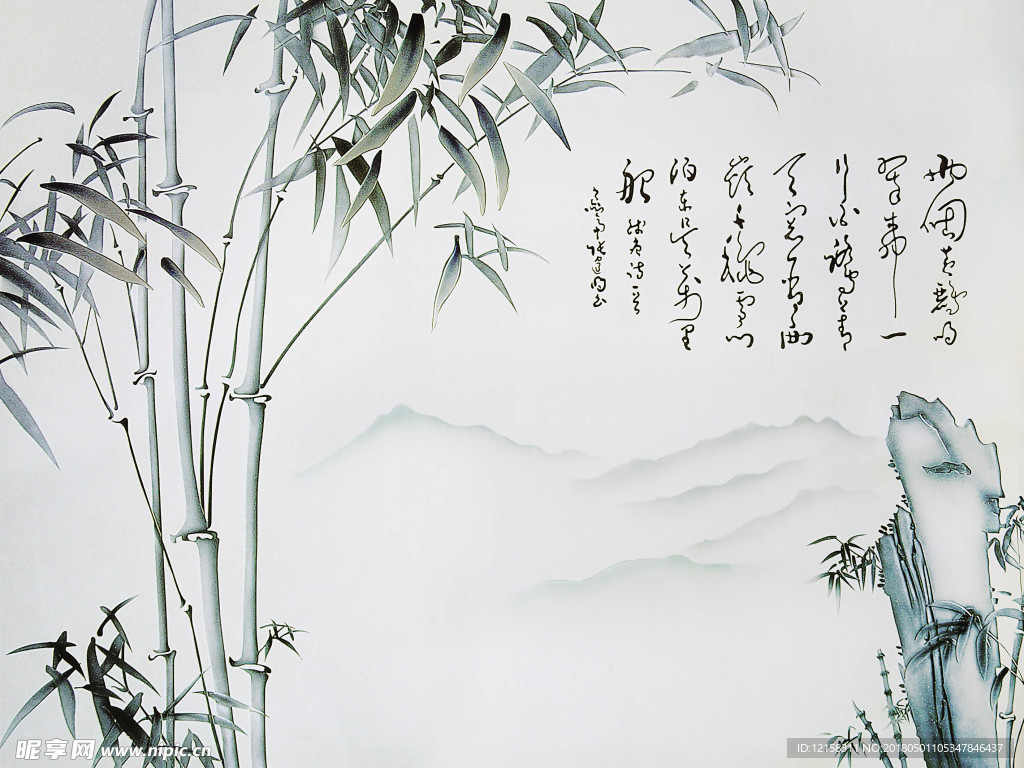 两个黄鹂鸣
翠柳一
行白鹭上青
天窗含西
岭千秋雪门
泊东吴万里
船
昵享网 www.nipic.cn
ID:12158311 NO:20180501105347846437